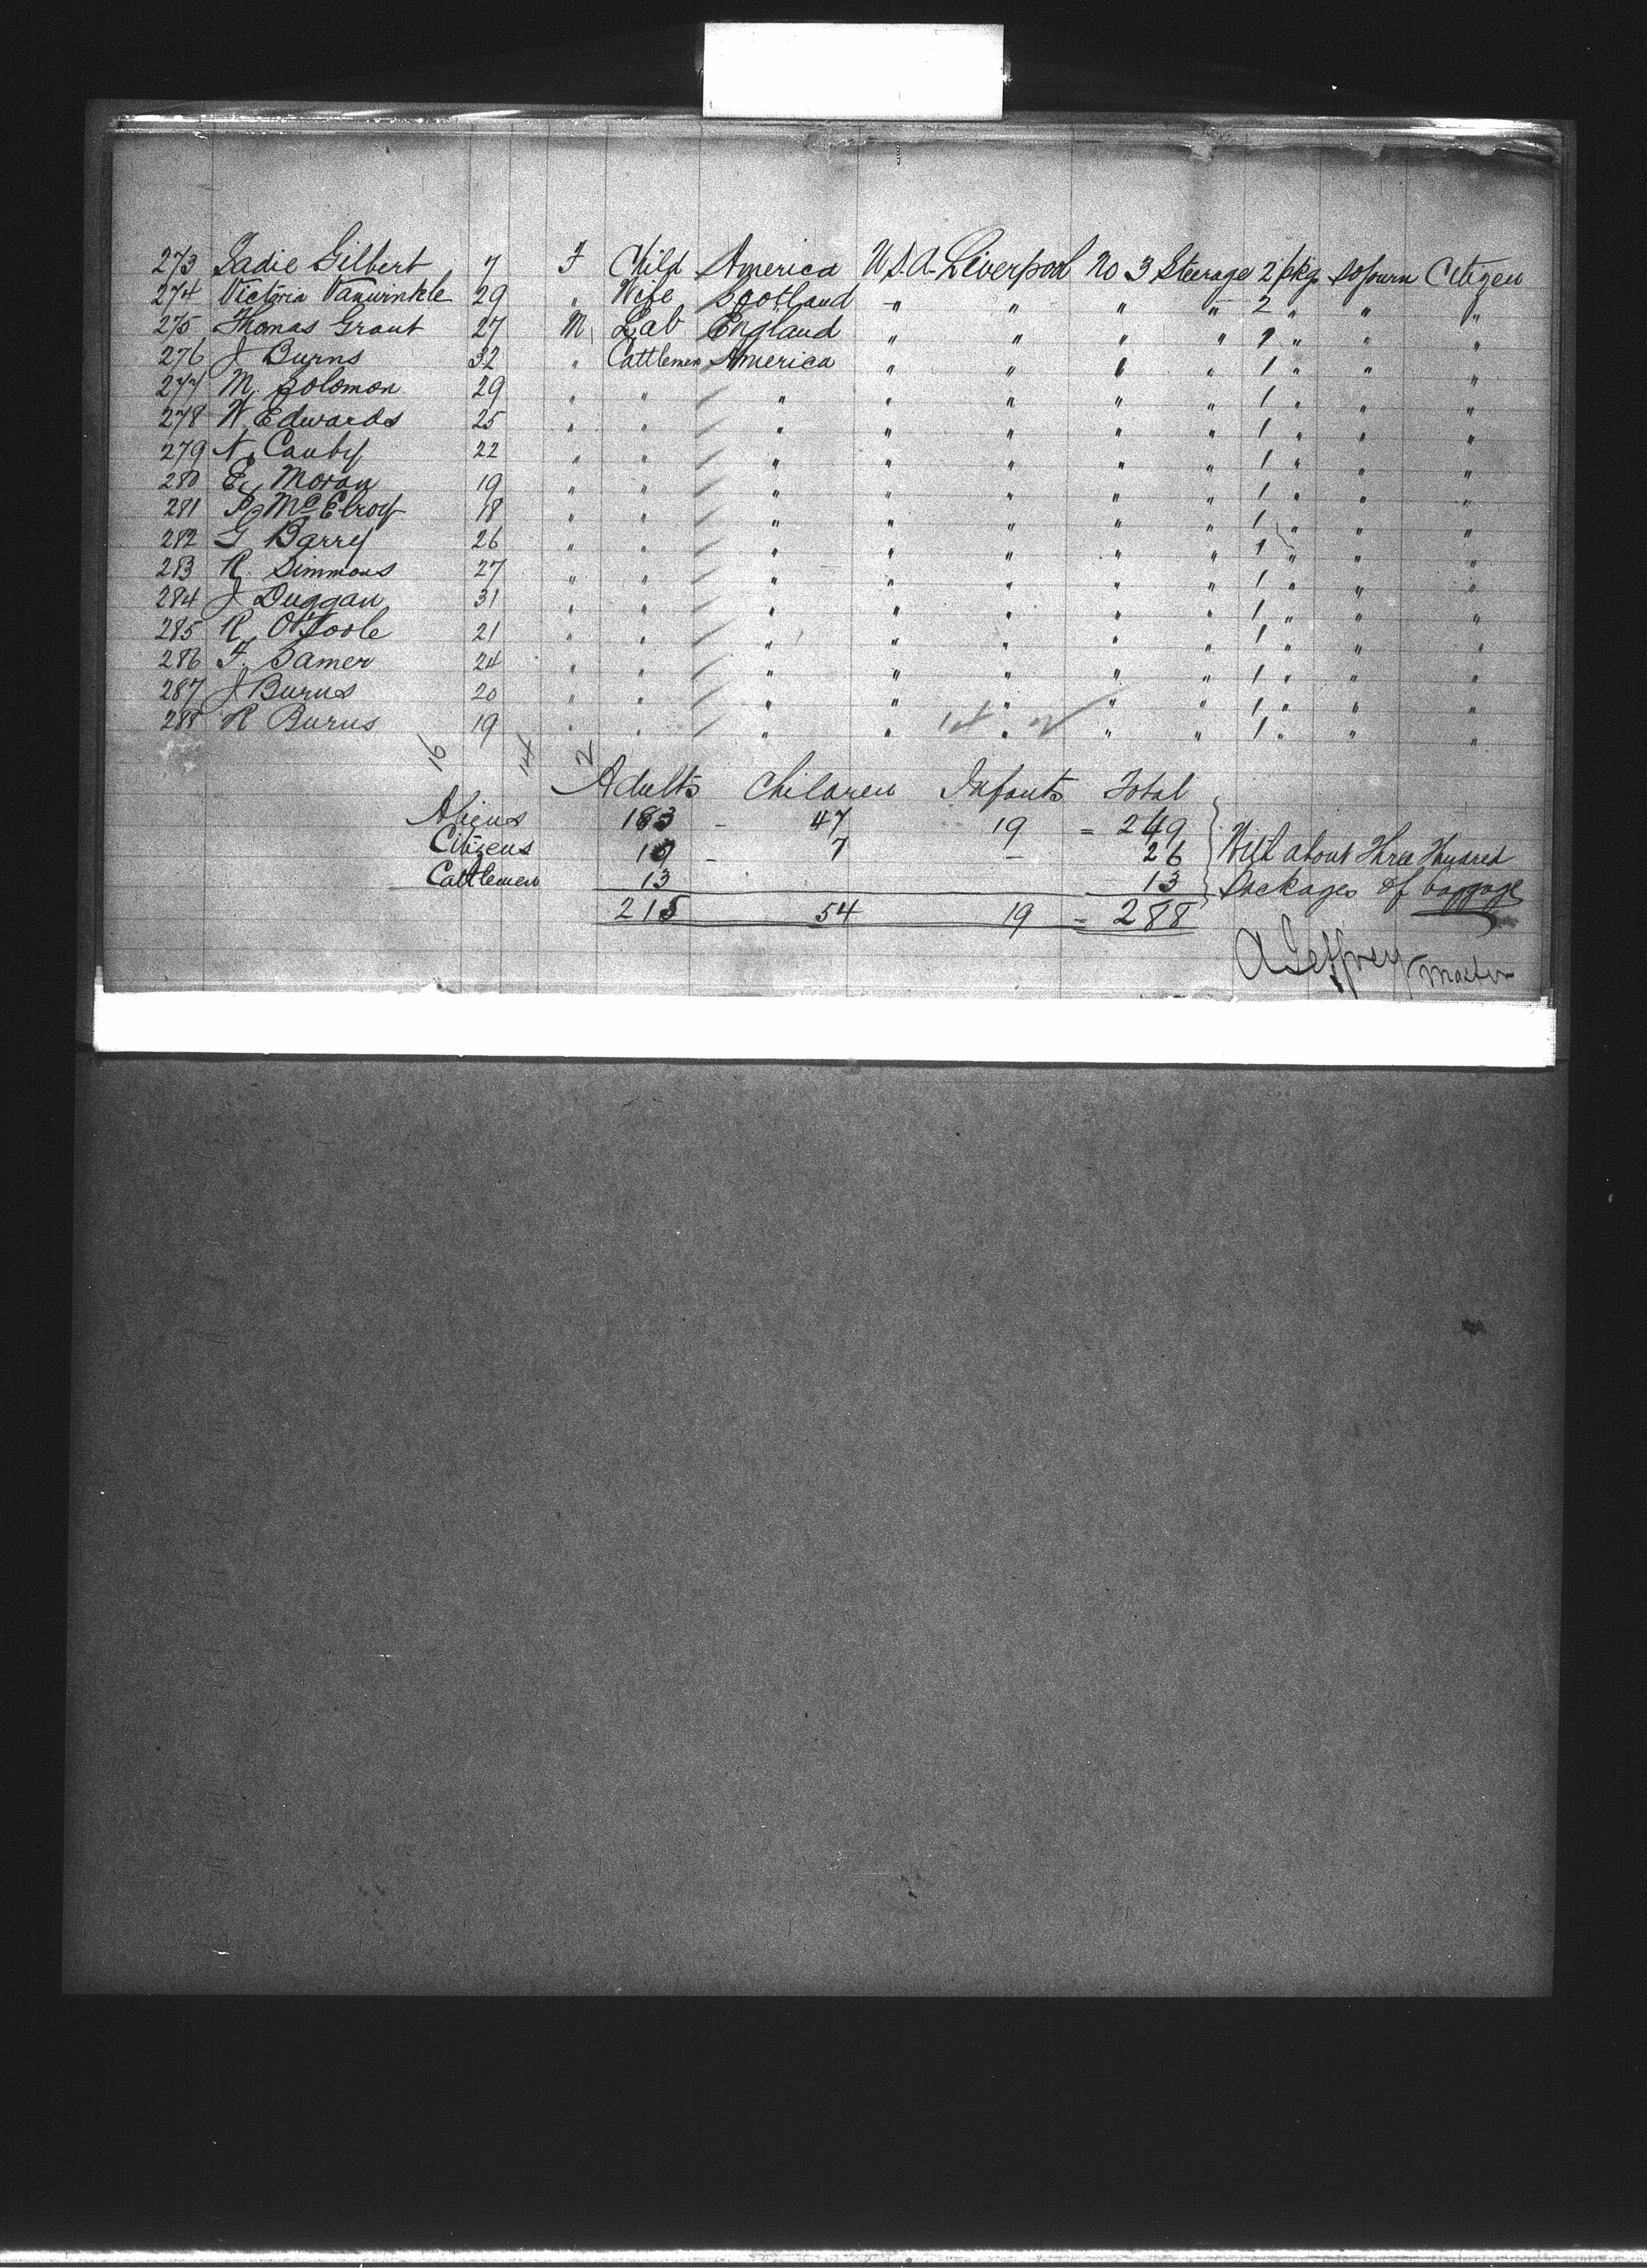 273 Sadie Gilbert 7 F Child America U.S.A. Liverpool No 3 Steerage 2 pkg Sojourn Citizen
274 Victoria Vanwinkle 29 " Wife Scotland " " " " 2 " " "
275 Thomas Grant 27 M Lab England " " " " 1 " " "
276 J Burns 32 " Cattlemen America " " " " 1 " " "
277 M. Solomon 29 " " " " " " " 1 " " "
278 W. Edwards 25 " " " " " " " 1 " " "
279 N. Canby 22 " " " " " " " 1 " " "
280 E. Moran 19 " " " " " " " 1 " " "
281 P. McElroy 18 " " " " " " " 1 " " "
282 G Barry 26 " " " " " " " 1 " " "
283 R. Simmons 27 " " " " " " " 1 " " "
284 J Duggan 31 " " " " " " " 1 " " "
285 R. O'Toole 21 " " " " " " " 1 " " "
286 F. Samer 24 " " " " " " " 1 " " "
287 J Burns 20 " " " " " " " 1 " " "
288 R Burns 19 " " " " " " " 1 " " "
16 14 2
Adults Children Infants Total
Aliens 183 - 47 19 = 249
Citizens 19 - 7 - 26 With about Three Hundred
Cattlemen 13 13 Packages of baggage
215 54 19 = 288
A Jeffrey Master